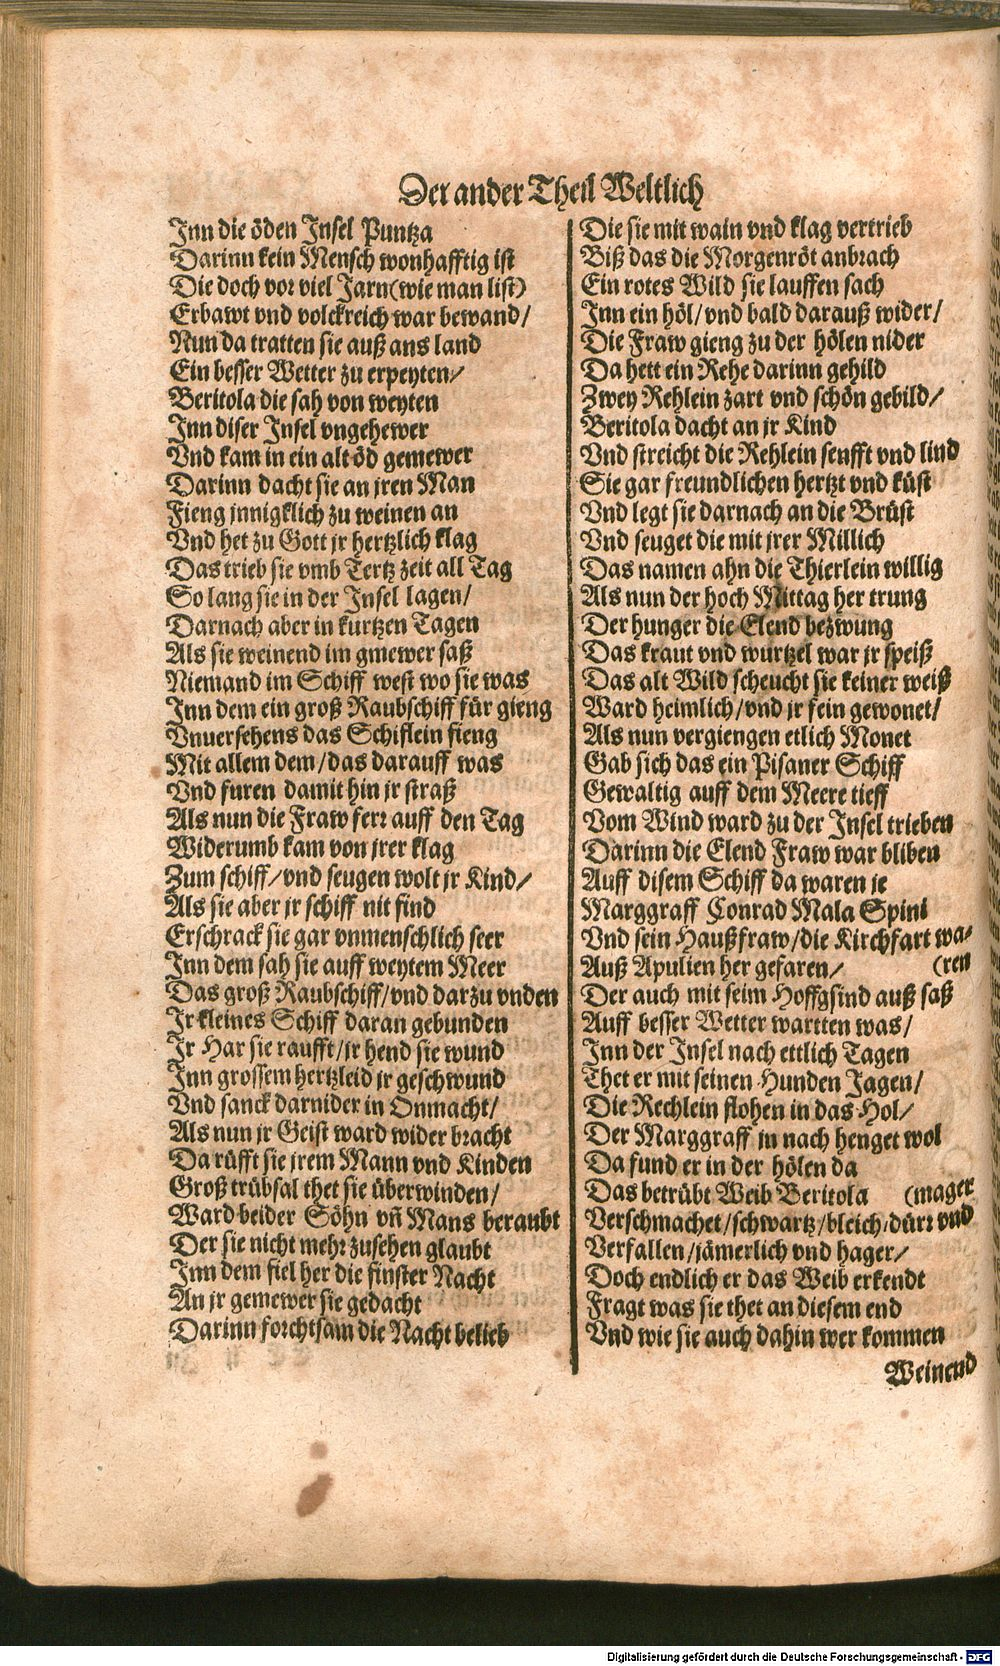 Der ander Theil Weltlich
Inn die öden Insel Puntza
Darinn kein Mensch wonhafftig ist
Die doch vor viel Jarn(wie man list)
Erbawt vnd volckreich war bewand/
Nun da tratten sie auß ans land
Ein besser Wetter zu erpeyten/
Beritola die sah von weyten
Inn diser Insel vngehewer
Vnd kam in ein alt öd gemewer
Darinn dacht sie an jren Man
Fieng jnnigklich zu weinen an
Vnd het zu Gott jr hertzlich klag
Das trieb sie vmb Tertz zeit all Tag
So lang sie in der Insel lagen/
Darnach aber in kurtzen Tagen
Als sie weinend im gmewer saß
Niemand im Schiff west wo sie was
Inn dem ein groß Raubschiff für gieng
Vnuersehens das Schiflein fieng
Mit allem dem/das darauff was
Vnd furen damit hin jr straß
Als nun die Fraw ferr auff den Tag
Widerumb kam von jrer klag
Zum schiff/vnd seugen wolt jr Kind/
Als sie aber jr schiff nit find
Erschrack sie gar vnmenschlich seer
Inn dem sah sie auff weytem Meer
Das groß Raubschiff/vnd darzu vnden
Ir kleines Schiff daran gebunden
Ir Har sie raufft/jr hend sie wund
Inn grossem hertzleid jr geschwund
Vnd sanck darnider in Onmacht/
Als nun jr Geist ward wider bracht
Da rüfft sie jrem Mann vnd Kinden
Groß trübsal thet sie überwinden/
Ward beider Söhn vñ Mans beraubt
Der sie nicht mehr zusehen glaubt
Inn dem fiel her die finster Nacht
An jr gemewer sie gedacht
Darinn forchtsam die Nacht belieb
Die sie mit wain vnd klag vertrieb
Biß das die Morgenröt anbrach
Ein rotes Wild sie lauffen sach
Inn ein höl/vnd bald darauß wider/
Die Fraw gieng zu der hölen nider
Da hett ein Rehe darinn gehild
Zwey Rehlein zart vnd schön gebild/
Beritola dacht an jr Kind
Vnd streicht die Rehlein senfft vnd lind
Sie gar freundlichen hertzt vnd küst
Vnd legt sie darnach an die Brüst
Vnd seuget die mit jrer Millich
Das namen ahn die Thierlein willig
Als nun der hoch Mittag her trung
Der hunger die Elend bezwung
Das kraut vnd wurtzel war jr speiß
Das alt Wild scheucht sie keiner weiß
Ward heimlich/vnd jr fein gewonet/
Als nun vergiengen etlich Monet
Gab sich das ein Pisaner Schiff
Gewaltig auff dem Meere tieff
Vom Wind ward zu der Insel trieben
Darinn die Elend Fraw war bliben
Auff disem Schiff da waren je
Marggraff Conrad Mala Spini
Vnd sein Haußfraw/die Kirchfart wa-
Auß Apulien her gefaren/ (ren
Der auch mit seim Hoffgsind auß saß
Auff besser Wetter wartten was/
Inn der Insel nach ettlich Tagen
Thet er mit seinen Hunden Jagen/
Die Rechlein flohen in das Hol/
Der Marggraff jn nach henget wol
Da fund er in der hölen da
Das betrübt Weib Beritola (mager
Verschmachet/schwartz/bleich/dürr vnd
Verfallen/jämerlich vnd hager/
Doch endlich er das Weib erkendt
Fragt was sie thet an diesem end
Vnd wie sie auch dahin wer kommen
Weinend
Digitalisierung gefördert durch die Deutsche Forschungsgemeinschaft - DFG